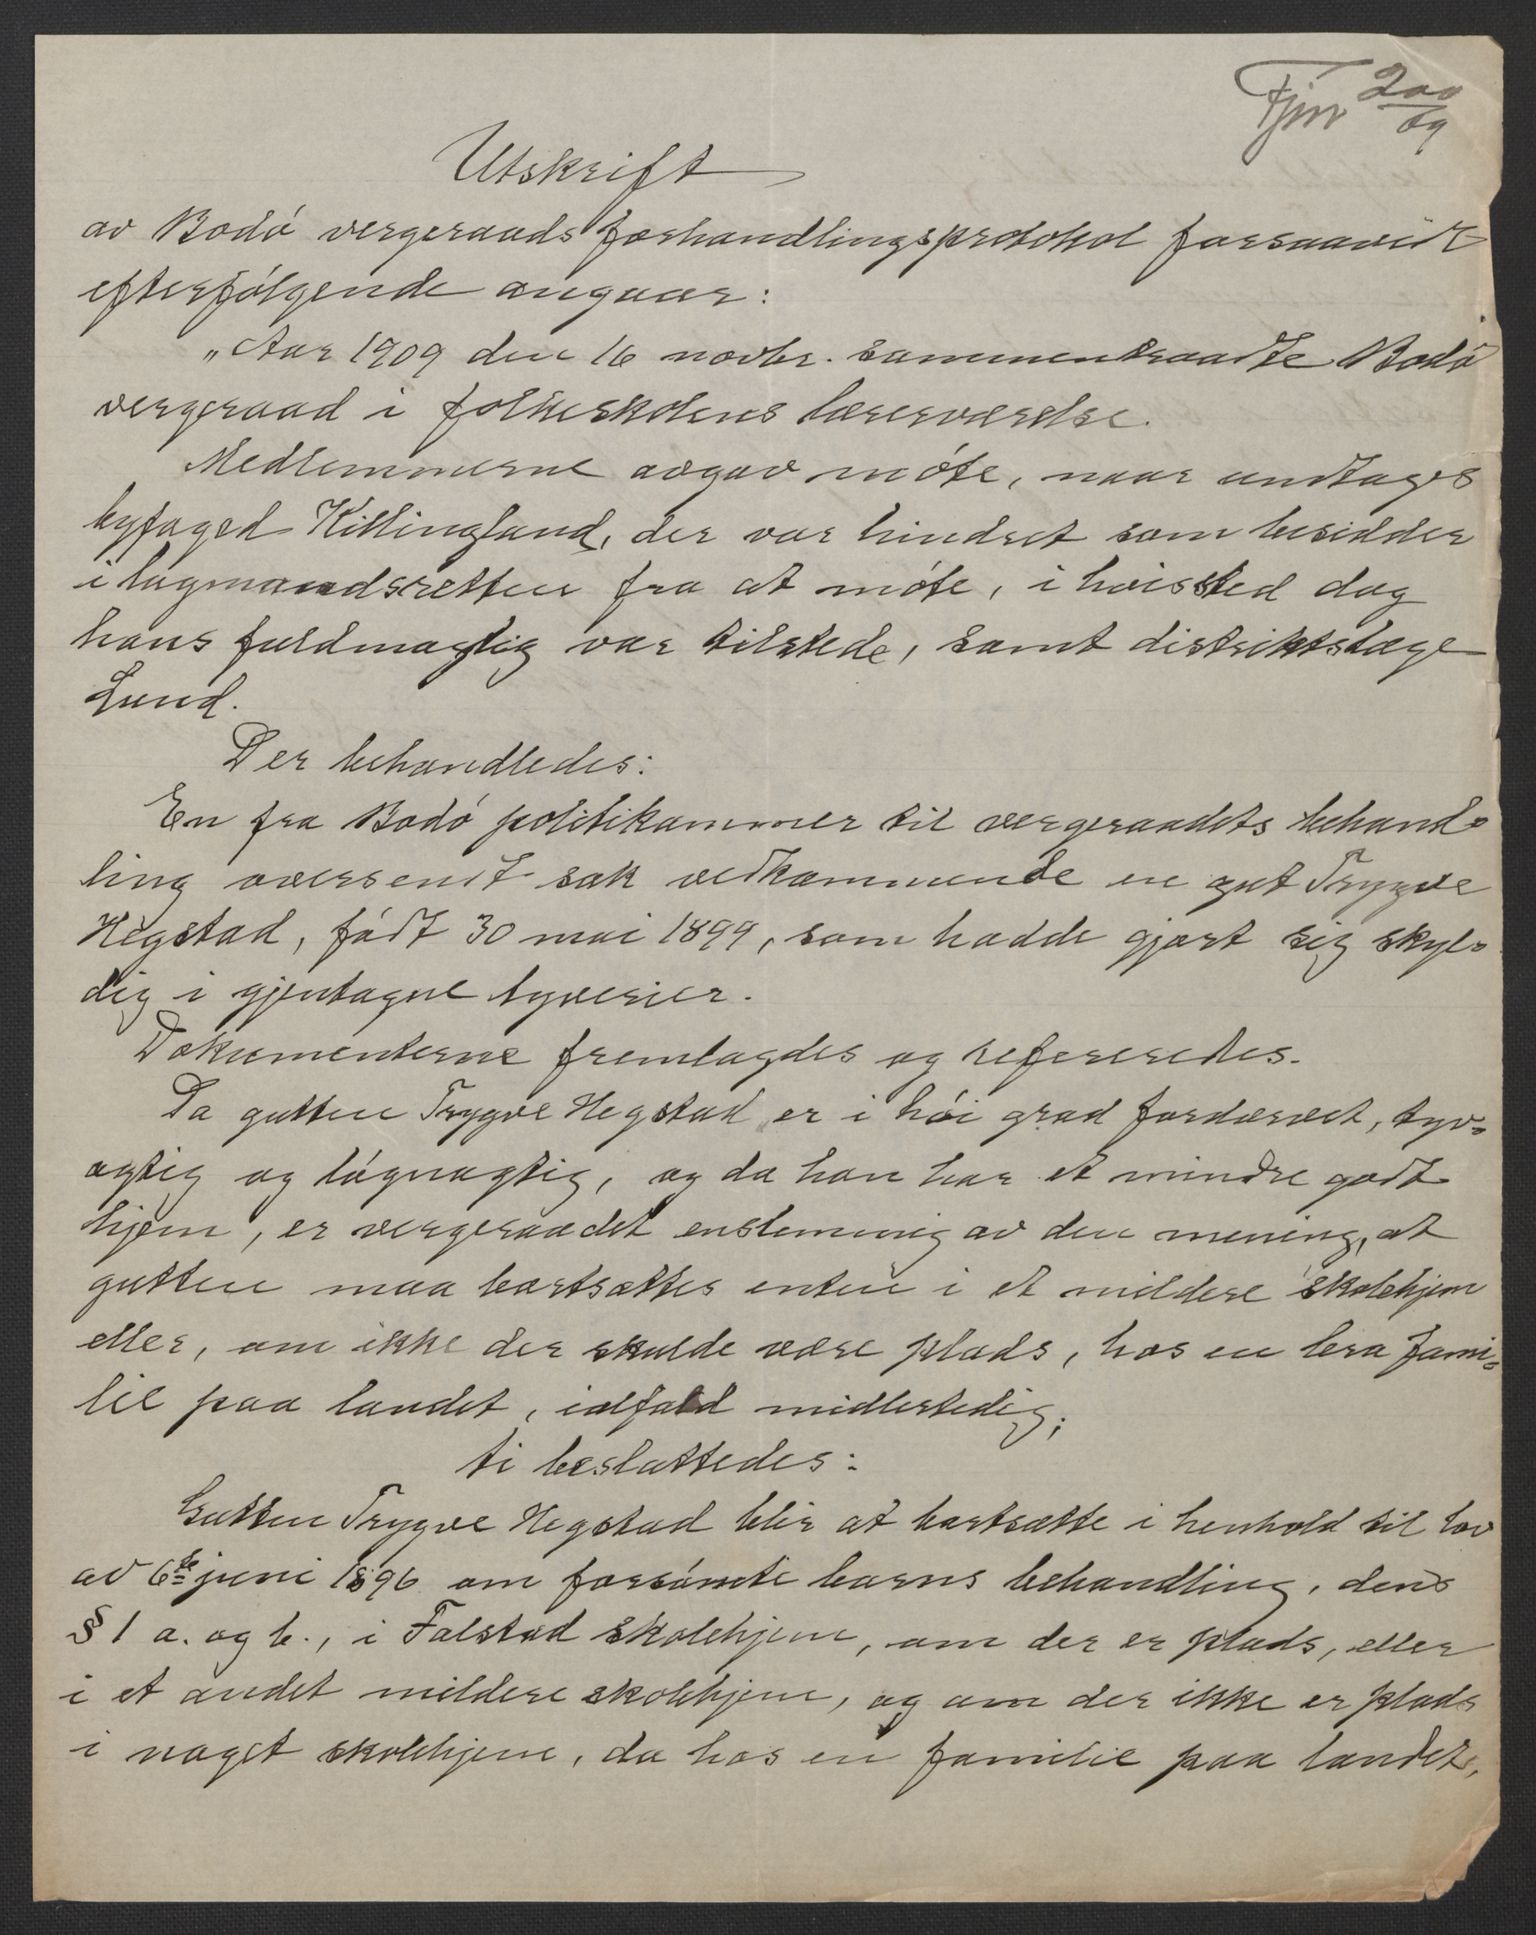 Fjm 200/09
Utskrift
av Bodó vergeraads forhandlingsprotokol forsaavidt
efterfólgende angaar:
„Aar 1909 den 16 novbr. sammentraadte Bodó
vergeraad i folkeskolens lærerværelse.
Medlemmerne avgav móte, naar undtages
byfoged Killingland, der var hindret som besidder
i lagmandsretten fra at móte, i hvis sted dog
hans fuldmægtig var tilstede, samt distriktslæge
Lund.
Der behandledes:
En fra Bodó politikammer til vergeraadets behand-
ling oversendt sak vedkommende en gut Trygve
Hegstad, fódt 30 mai 1899, som hadde gjort sig skyl-
dig i gjentagne tyverier.
Dokumenterne fremlagdes og refereredes.
Da gutten Trygve Hegstad er i hói grad fordærvet, tyv-
agtig og lógnagtig, og da han har et mindre godt
hjem, er vergeraadet enstemmig av den mening, at
gutten maa bortsættes enten i et mildere skolehjem
eller, om ikke der skulde være plads, hos en bra fami-
lie paa landet, ialfald midlertidig;
ti besluttedes:
Gutten Trygve Hegstad blir at bortsætte i henhold til lov
av 6te juni 1896 om forsómte barns behandling, dens
§ 1 a. og b., i Falstad skolehjem, om der er plads, eller
i et andet mildere skolehjem, og om der ikke er plads
i noget skolehjem, da hos en familie paa landet,